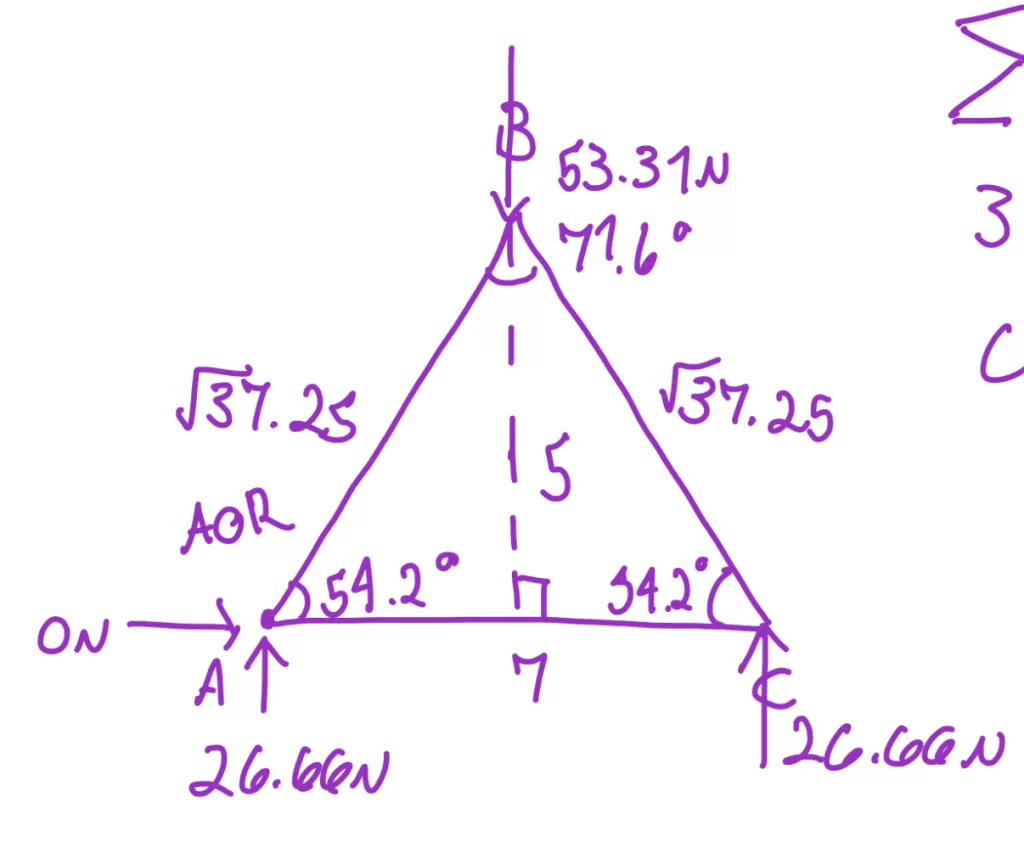 B
53.31N
71.6°
Σ
3
√37.25
√37.25
5
AOR
54.2°
54.2°
0N
A
7
C
26.66N
26.66N